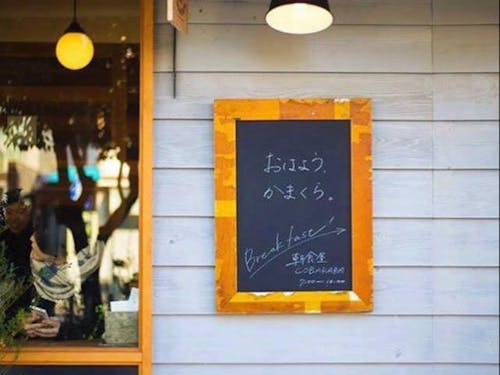 おはよう、
かまくら。
Breakfast!
朝食屋
COBAKABA
7:00ー10:00